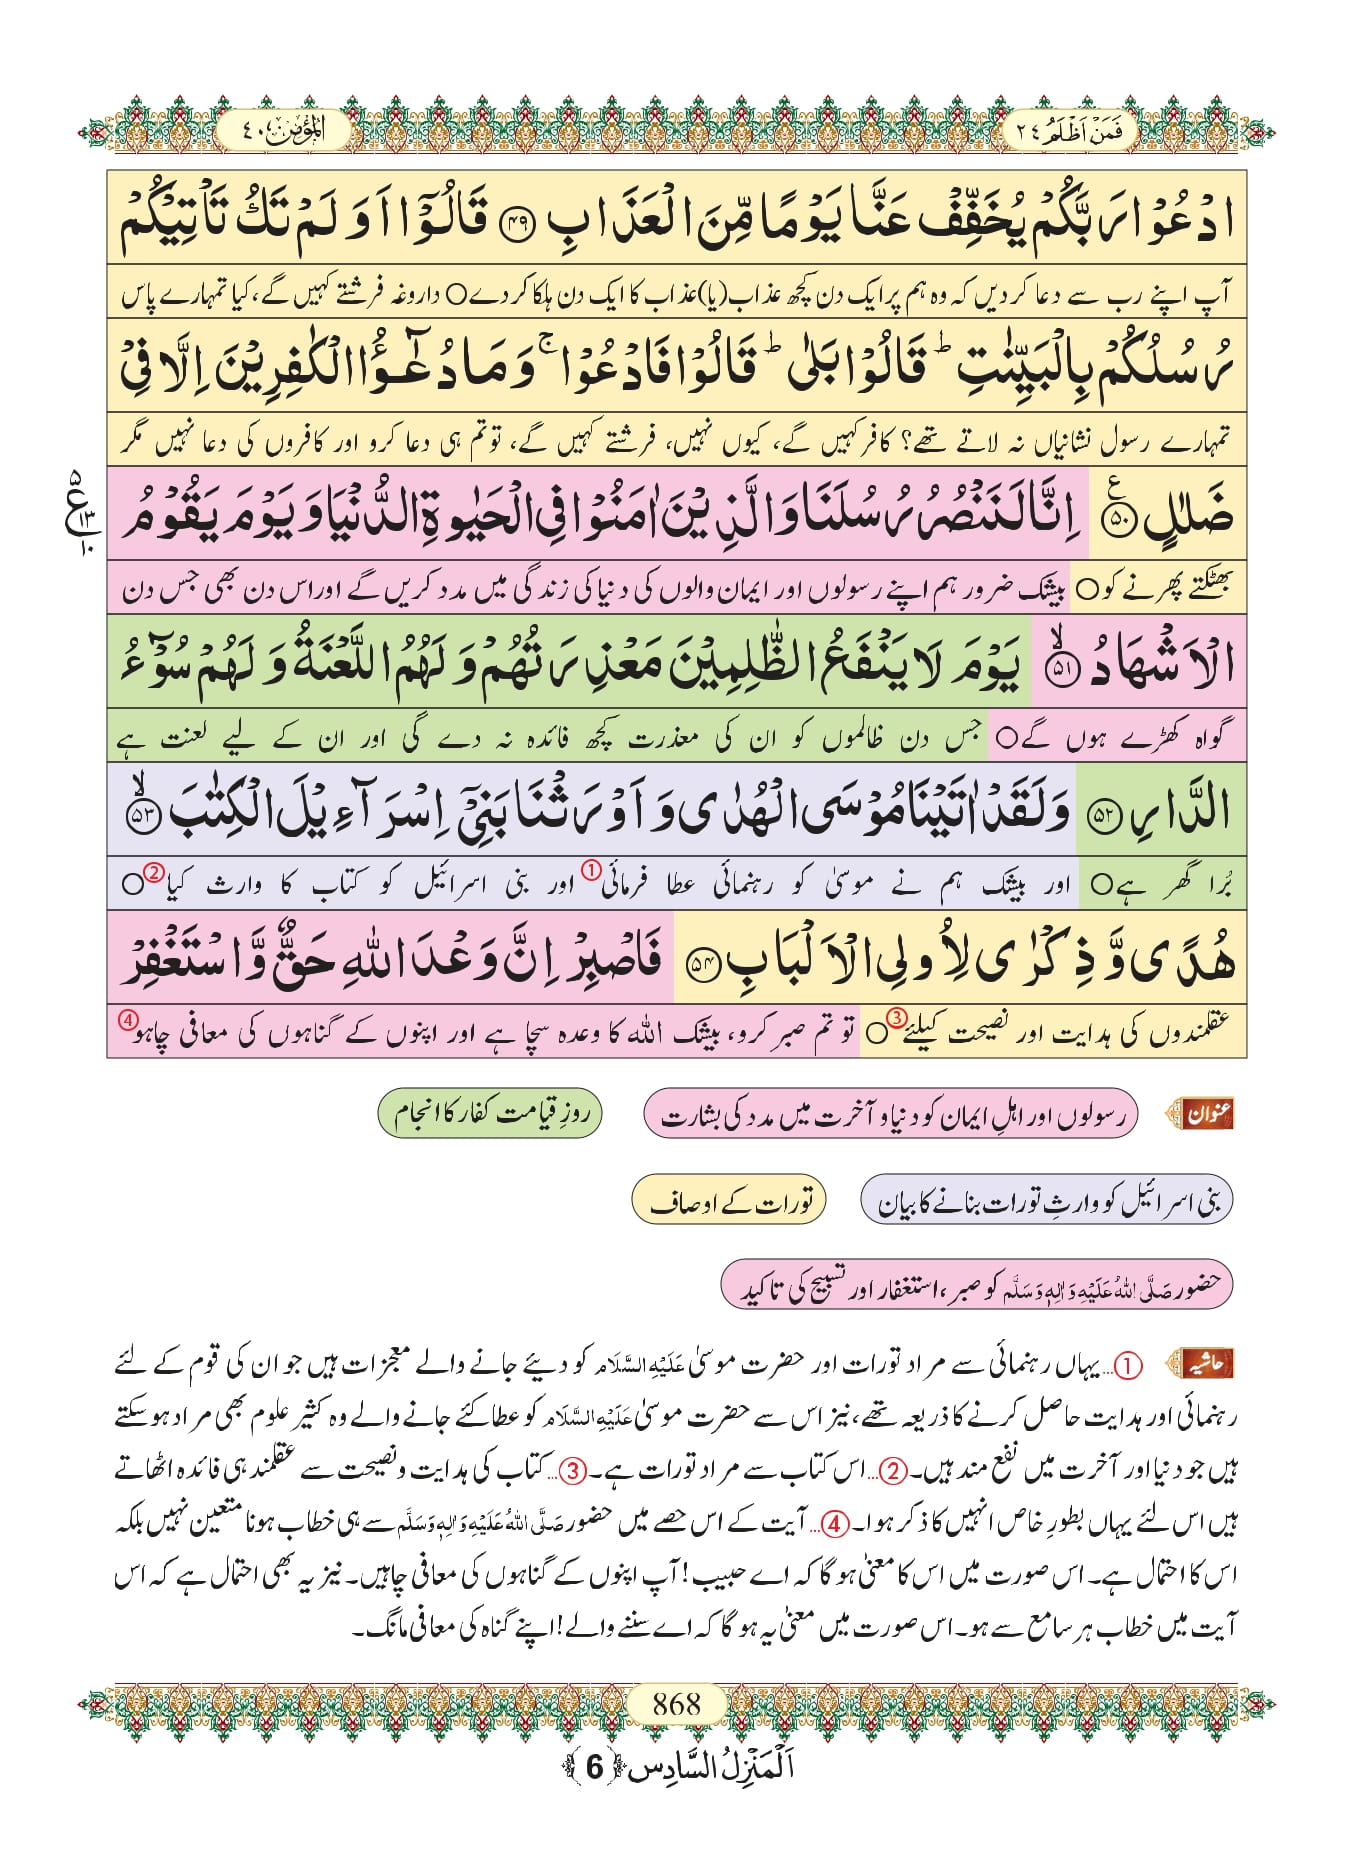 فَمَنْ اَظْلَمُ ٢٤
المؤمن ٤٠
ادْعُوْا رَبَّكُمْ یُخَفِّفْ عَنَّا یَوْمًا مِّنَ الْعَذَابِ ﴿۴۹﴾ قَالُوْۤا اَوَ لَمْ تَكُ تَاْتِیْكُمْ
آپ اپنے رب سے دعا کردیں کہ وہ ہم پر ایک دن کچھ عذاب (یا) عذاب کا ایک دن ہلکا کردے○ داروغہ فرشتے کہیں گے، کیا تمہارے پاس
رُسُلُكُمْ بِالْبَیِّنٰتِؕ قَالُوْا بَلٰىؕ قَالُوْا فَادْعُوْاۚ وَ مَا دُعٰٓؤُا الْكٰفِرِیْنَ اِلَّا فِیْ
تمہارے رسول نشانیاں نہ لاتے تھے؟ کافر کہیں گے، کیوں نہیں، فرشتے کہیں گے، تو تم ہی دعا کرو اور کافروں کی دعا نہیں مگر
ضَلٰلٍ ﴿۵۰﴾ ع اِنَّا لَنَنْصُرُ رُسُلَنَا وَ الَّذِیْنَ اٰمَنُوْا فِی الْحَیٰوةِ الدُّنْیَا وَ یَوْمَ یَقُوْمُ
۵ ع ۱۳ ۱۰
بھٹکتے پھرنے کو○ بیشک ضرور ہم اپنے رسولوں اور ایمان والوں کی دنیا کی زندگی میں مدد کریں گے اور اس دن بھی جس دن
الْاَشْهَادُ ﴿۵۱﴾ۙ یَوْمَ لَا یَنْفَعُ الظّٰلِمِیْنَ مَعْذِرَتُهُمْ وَ لَهُمُ اللَّعْنَةُ وَ لَهُمْ سُوْٓءُ
گواہ کھڑے ہوں گے○ جس دن ظالموں کو ان کی معذرت کچھ فائدہ نہ دے گی اور ان کے لیے لعنت ہے
الدَّارِ ﴿۵۲﴾ وَ لَقَدْ اٰتَیْنَا مُوْسَى الْهُدٰى وَ اَوْرَثْنَا بَنِیْۤ اِسْرَآءِیْلَ الْكِتٰبَ ﴿۵۳﴾ۙ
بُرا گھر ہے○ اور بیشک ہم نے موسیٰ کو رہنمائی عطا فرمائی① اور بنی اسرائیل کو کتاب کا وارث کیا②○
هُدًى وَّ ذِكْرٰى لِاُولِی الْاَلْبَابِ ﴿۵۴﴾ فَاصْبِرْ اِنَّ وَعْدَ اللّٰهِ حَقٌّ وَّ اسْتَغْفِرْ
عقلمندوں کی ہدایت اور نصیحت کیلئے③○ تو تم صبر کرو، بیشک اللہ کا وعدہ سچا ہے اور اپنوں کے گناہوں کی معافی چاہو④
عنوان رسولوں اور اہلِ ایمان کو دنیا و آخرت میں مدد کی بشارت روزِ قیامت کفار کا انجام
بنی اسرائیل کو وارثِ تورات بنانے کا بیان تورات کے اوصاف
حضور صَلَّی اللہُ عَلَیْہِ وَاٰلِہٖ وَسَلَّم کو صبر، استغفار اور تسبیح کی تاکید
حاشیہ ①...یہاں رہنمائی سے مراد تورات اور حضرت موسیٰ عَلَیْہِ السَّلَام کو دیئے جانے والے معجزات ہیں جو ان کی قوم کے لئے
رہنمائی اور ہدایت حاصل کرنے کا ذریعہ تھے، نیز اس سے حضرت موسیٰ عَلَیْہِ السَّلَام کو عطا کئے جانے والے وہ کثیر علوم بھی مراد ہوسکتے
ہیں جو دنیا اور آخرت میں نفع مند ہیں۔②...اس کتاب سے مراد تورات ہے۔③...کتاب کی ہدایت و نصیحت سے عقلمند ہی فائدہ اٹھاتے
ہیں اس لئے یہاں بطورِ خاص انہیں کا ذکر ہوا۔④...آیت کے اس حصے میں حضور صَلَّی اللہُ عَلَیْہِ وَاٰلِہٖ وَسَلَّم سے ہی خطاب ہونا متعین نہیں بلکہ
اس کا احتمال ہے۔ اس صورت میں اس کا معنیٰ ہو گا کہ اے حبیب! آپ اپنوں کے گناہوں کی معافی چاہیں۔ نیز یہ بھی احتمال ہے کہ اس
آیت میں خطاب ہر سامع سے ہو۔ اس صورت میں معنیٰ یہ ہو گا کہ اے سننے والے! اپنے گناہ کی معافی مانگ۔
868
اَلْمَنْزِلُ السَّادِس ﴿6﴾